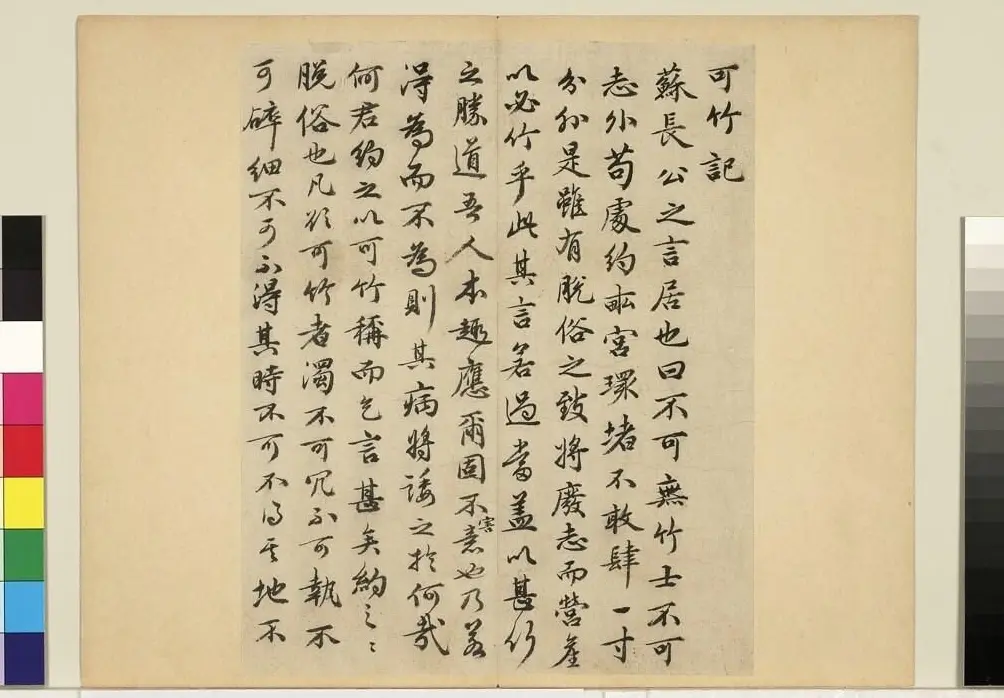 可竹記
蘇長公之言居也曰不可無竹士不可
志外苟處約畝宮環堵不敢肆一寸
分外是雖有脫俗之致將廢志而營產
以必竹乎此其言若過當蓋以甚竹
之勝道吾人本趣應爾固不害意也乃若
得為而不為則其病將諉之於何哉
何君約之以可竹稱而乞言甚矣約之之
脫俗也凡欲可竹者濁不可冗不可執不
可碎細不可不得其時不可不得其地不